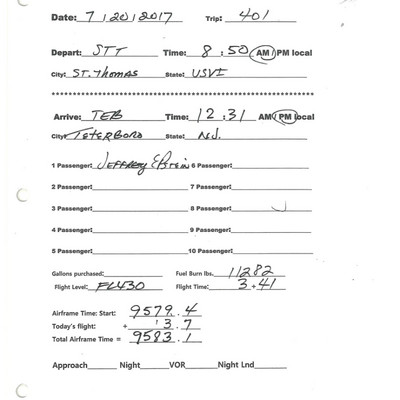 Date: 7/20/2017 Trip: 401
Depart: STT Time: 8:50 AM/PM local
City: ST. Thomas State: USVI
************************************************************
Arrive: TEB Time: 12:31 AM/PM local
City: Teterboro State: NJ.
1 Passenger: Jeffrey Epstein 6 Passenger:
2 Passenger: 7 Passenger:
3 Passenger: 8 Passenger:
4 Passenger: 9 Passenger:
5 Passenger: 10 Passenger:
Gallons purchased: Fuel Burn lbs. 11282
Flight Level: FL430 Flight Time: 3+41
Airframe Time: Start: 9579.4
Today's flight: + 3.7
Total Airframe Time = 9583.1
Approach Night VOR Night Lnd